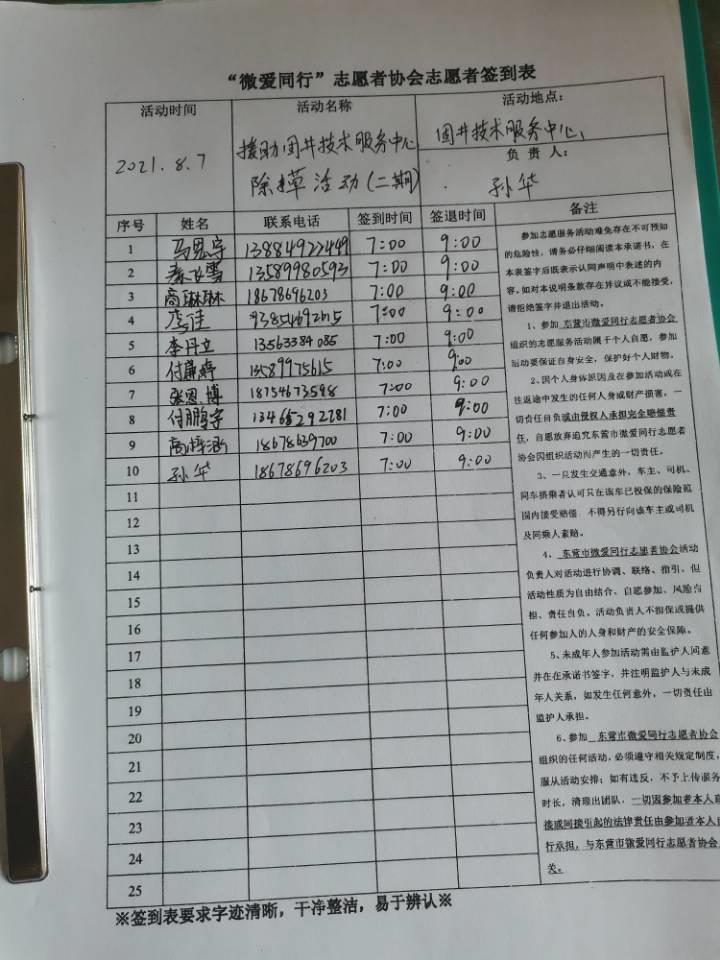 “微爱同行”志愿者协会志愿者签到表
活动时间 活动名称 活动地点：
2021.8.7 援助固井技术服务中心 除草活动(二期) 固井技术服务中心
负责人：
孙华
序号 姓名 联系电话 签到时间 签退时间 备注
1 马恩宇 13884922449 7:00 9:00
2 秦飞雪 13589980593 7:00 9:00
3 商琳琳 18678696203 7:00 9:00
4 李佳 7:00 9:00
5 李丹立 13563384085 7:00 9:00
6 付 13589975615 7:00 9:00
7 张恩博 18754673598 7:00 9:00
8 付鹏宇 13465292281 7:00 9:00
9 商梓涵 18678639700 7:00 9:00
10 孙华 18678696203 7:00 9:00
11
12
13
14
15
16
17
18
19
20
21
22
23
24
25
参加志愿服务活动难免存在不可预知
的危险性，请务必仔细阅读本承诺书，在
本表签字后既表示认同声明中表述的内
容。如对本说明条款存在异议或不能接受，
请拒绝签字并退出活动。
1、参加 东营市微爱同行志愿者协会
组织的志愿服务活动属于个人自愿，参加
运动要保证自身安全，保护好个人财物。
2、因个人身体原因及在参加活动或在
往返途中发生的任何人身或财产损害，一
切责任自负或由侵权人承担完全赔偿责
任，自愿放弃追究东营市微爱同行志愿者
协会因组织活动而产生的一切责任。
3、一旦发生交通意外，车主、司机、
同车搭乘者认可只在该车已投保的保险范
围内接受赔偿，不得另行向该车主或司机
及同乘人索赔。
4、 东营市微爱同行志愿者协会活动
负责人对活动进行协调、联络、指引，但
活动性质为自由结合、自愿参加、风险自
担、责任自负。活动负责人不担保或提供
任何参加人的人身和财产的安全保障。
5、未成年人参加活动需由监护人同意
并在在承诺书签字，并注明监护人与未成
年人关系，如发生任何意外，一切责任由
监护人承担。
6、参加 东营市微爱同行志愿者协会
组织的任何活动，必须遵守相关规定制度，
服从活动安排；如有违反，不予上传服务
时长，清理出团队，一切因参加者本人直
接或间接引起的法律责任由参加者本人自
行承担，与东营市微爱同行志愿者协会
关。
※签到表要求字迹清晰，干净整洁，易于辨认※